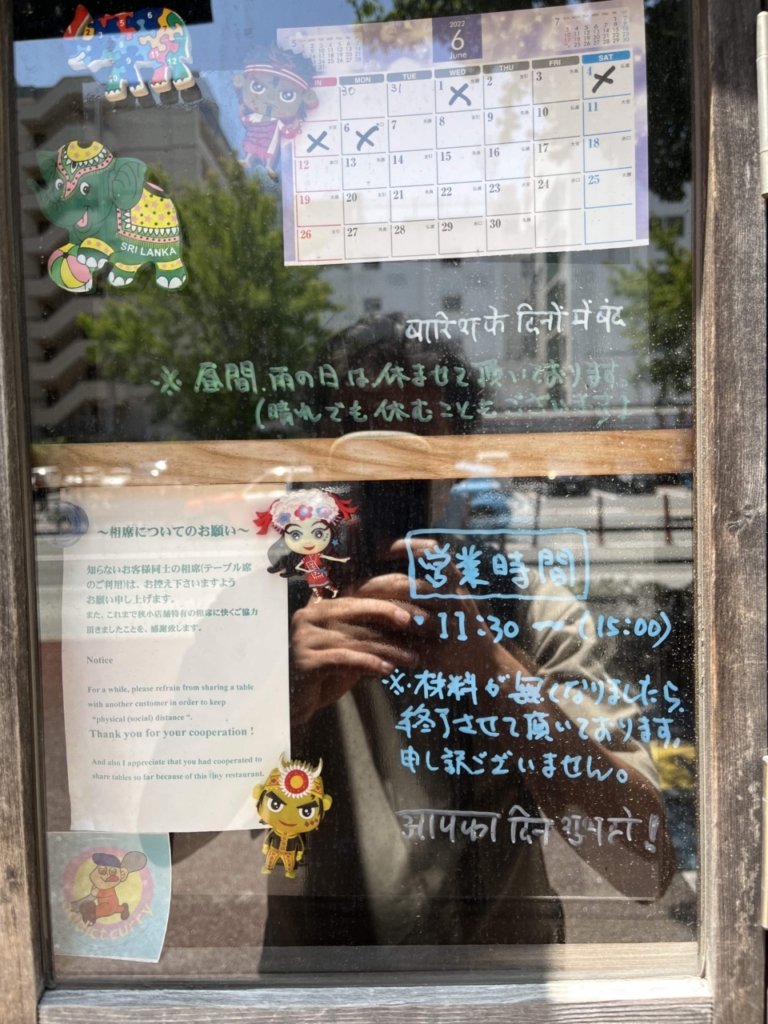 2022
6
June
MON TUE WED THU FRI SAT
30 31 1 2 3 4
5 6 7 8 9 10 11
12 13 14 15 16 17 18
19 20 21 22 23 24 25
26 27 28 29 30
SRI LANKA
बारिश के दिनों में बंद
※ 昼間、雨の日は休ませて頂いております。
(晴れでも休むことも ございます)
~相席についてのお願い~
知らないお客様同士の相席(テーブル席
のご利用)は、お控え下さいますよう
お願い申し上げます。
また、これまで狭小店舗特有の相席に快くご協力
頂きましたことを、感謝致します。
Notice
For a while, please refrain from sharing a table
with another customer in order to keep
“physical (social) distance “.
Thank you for your cooperation !
And also I appreciate that you had cooperated to
share tables so far because of this tiny restaurant.
営業時間
・11:30 ~ (15:00)
※材料が無くなりましたら、
終了させて頂いております。
申し訳ございません。
आपका दिन शुभ हो!